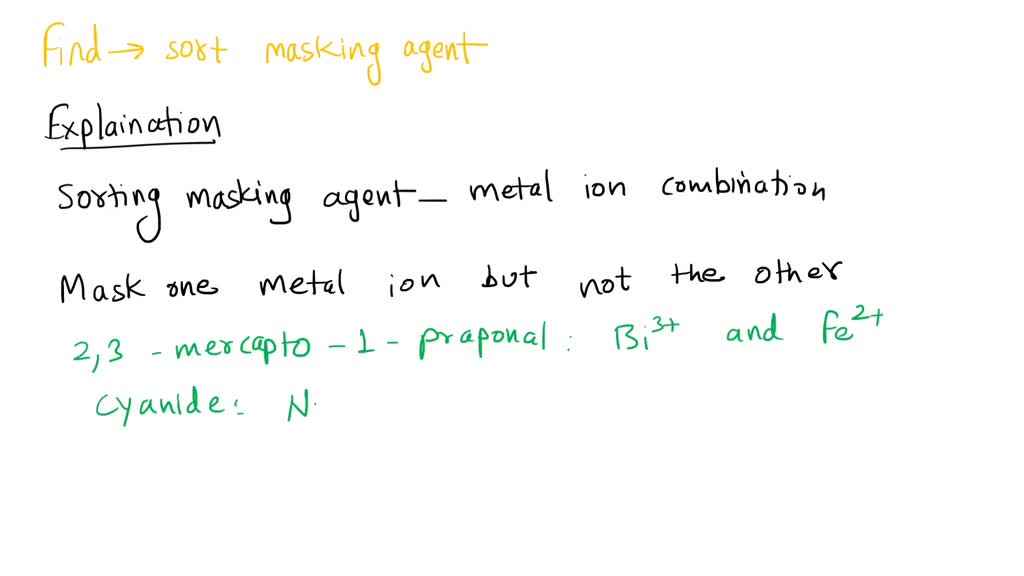 Find → sort masking agent
Explaination
Sorting masking agent – metal ion combination
Mask one metal ion but not the other
2,3 - mercapto - 1 - praponal : Bi³⁺ and Fe²⁺
Cyanide: N